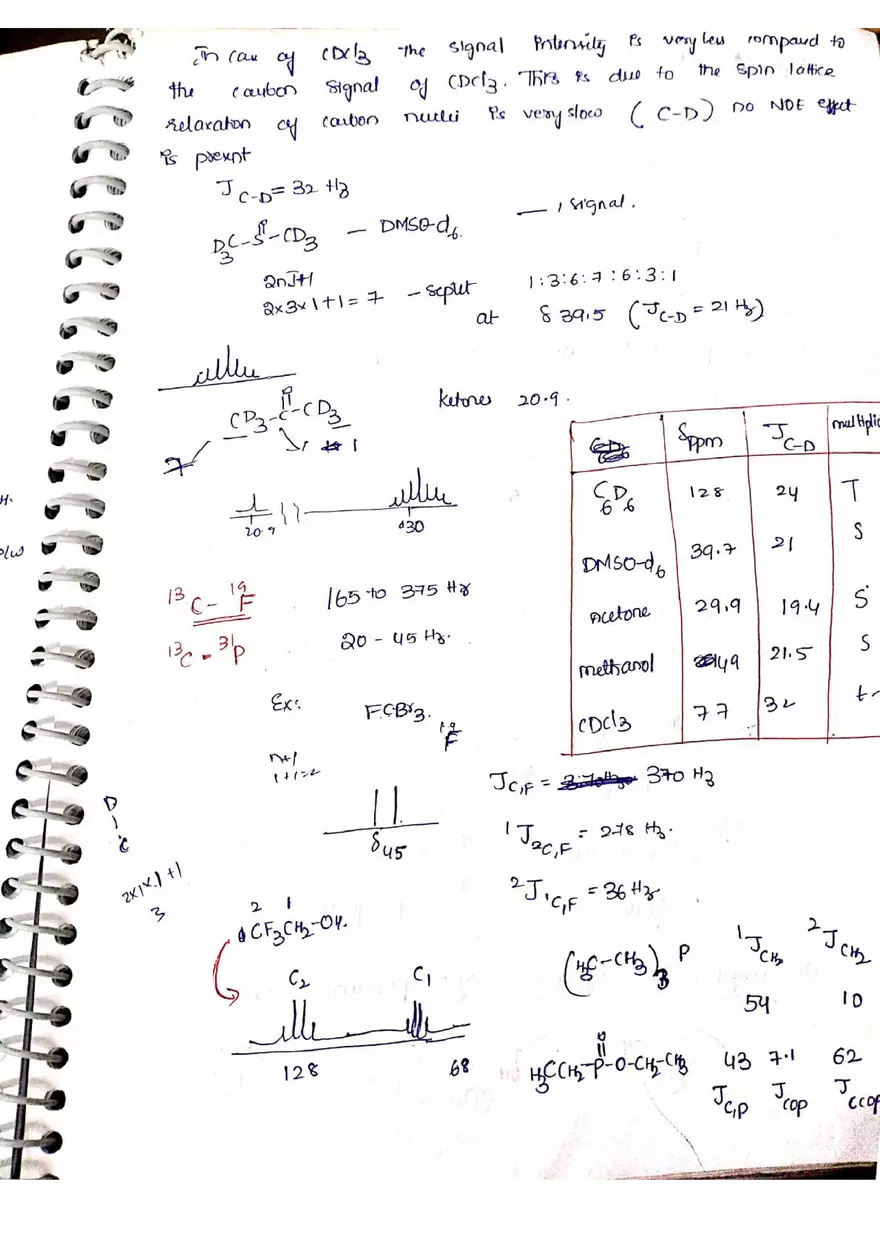 In case of CDCl3 the signal intensity is very less compared to
the carbon signal of CDCl3. This is due to the spin lattice
relaxation of carbon nuclei is very slow ( C-D) no NOE effect
is present
J C-D = 32 Hz
D3C-S-CD3 - DMSO-d6 — 1 signal.
O
2nI+1
2x3x1+1 = 7 - septet 1:3:6:7:6:3:1
at δ 39.5 (J C-D = 21 Hz)
O
CD3-C-CD3 Ketones 20.9.
7 1
20.9 30
δppm J C-D multiplic
C6D6 128 24 T
DMSO-d6 39.7 21 S
Acetone 29.9 19.4 S
methanol 49 21.5 S
CDCl3 77 32 t
13C - 19F 165 to 375 Hz
13C - 31P 20 - 45 Hz.
Ex: FCBr3.
19F
n+1
1+1=2
J C,F = 370 Hz
δ 45
1J 2C,F = 278 Hz.
2J 1C,F = 36 Hz
D
C
2x1x1+1
3
2 1
CF3CH2-OH.
C2 C1
128 68
(H3C-CH3)3 P 1J CH2 2J CH2
54 10
O
H3CCH2-P-O-CH2-CH3 43 7.1 62
J C,P J COP J CCOP